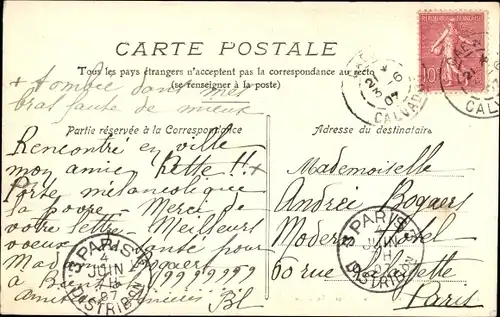 CARTE POSTALE
Tous les pays étrangers n'acceptent pas la correspondance au recto
(se renseigner à la poste)
+ tombée dans mes
bras faute de mieux
Partie réservée à la Correspondance
Adresse du destinataire
Rencontré en ville
mon amie Kette!! +
Porte mélancolique
sa povre - Merci de
votre lettre - Meilleurs
voeux santé pour
Mad Bogaers
à Bient
Mademoiselle
Andréé Bogaers
Modern Hotel
60 rue Lafayette
Paris
RÉPUBLIQUE FRANÇAISE
10
CALVADOS
CAEN
CALVADOS
PARIS
4
JUIN
07
DISTRIBON
PARIS
JUIN
DISTRIBON